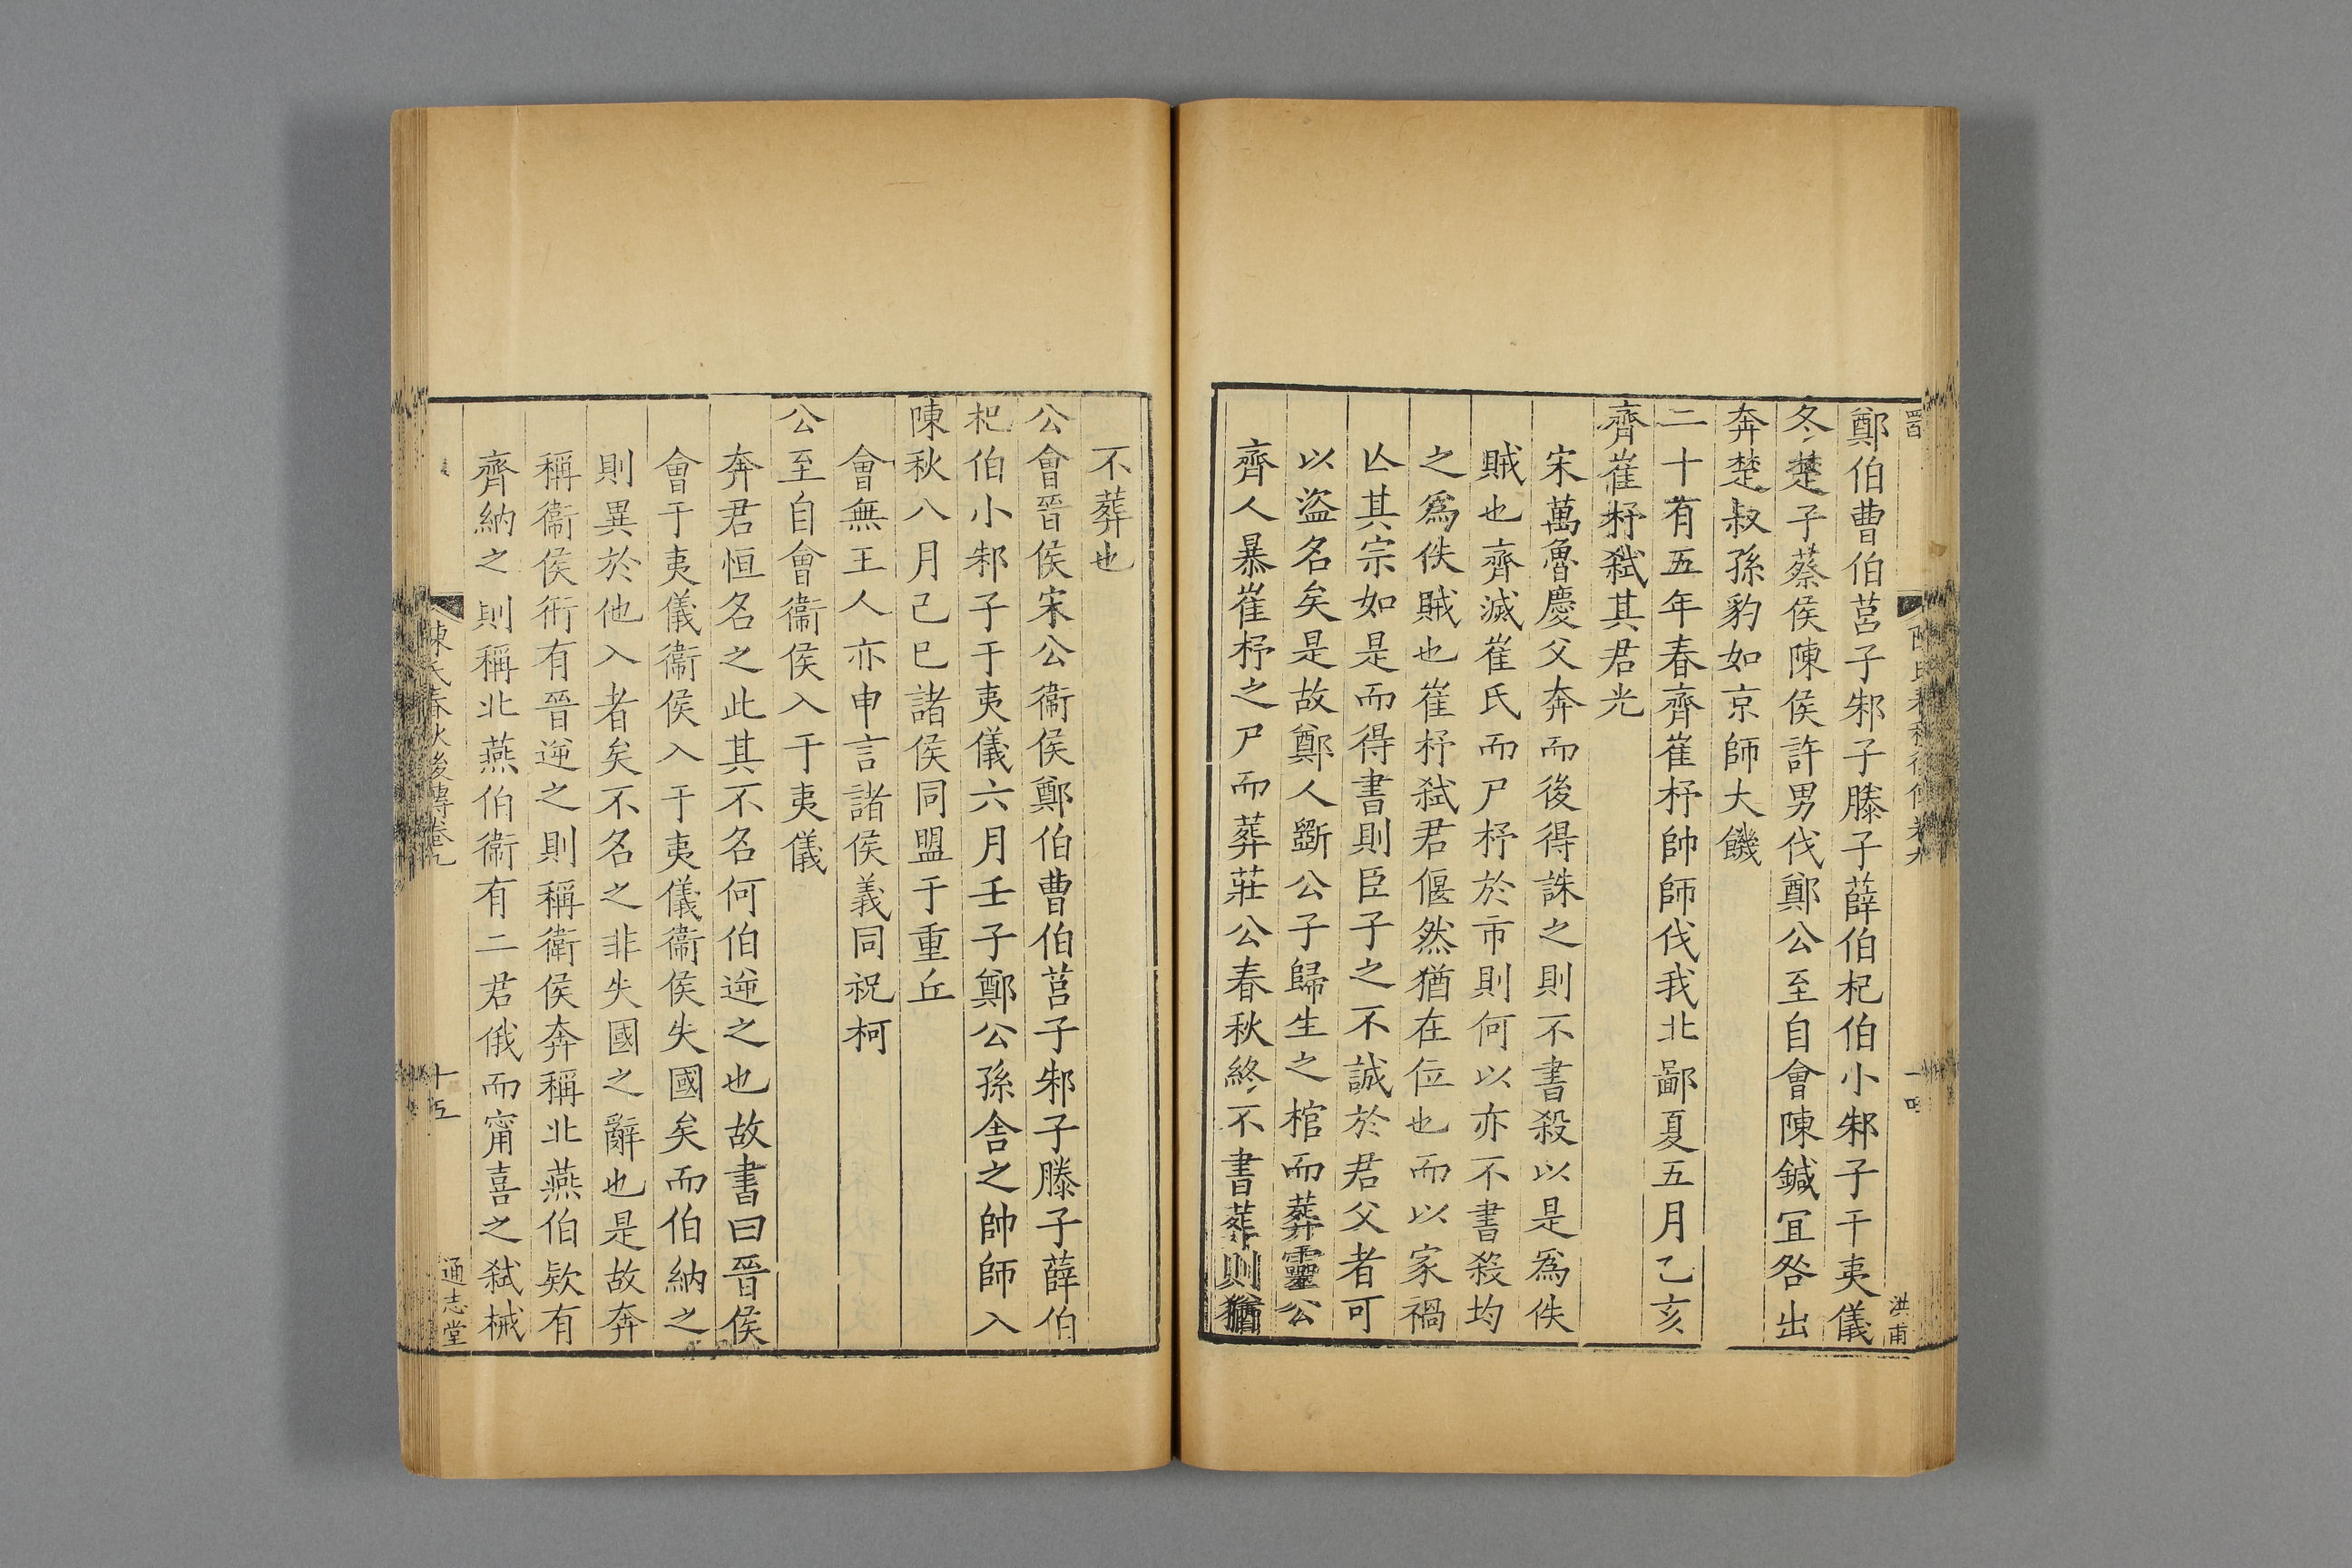 鄭伯曹伯莒子邾子滕子薛伯杞伯小邾子于夷儀
冬楚子蔡侯陳侯許男伐鄭公至自會陳鍼宜咎出
奔楚叔孫豹如京師大饑
二十有五年春齊崔杼帥師伐我北鄙夏五月乙亥
齊崔杼弑其君光
宋萬魯慶父奔而後得誅之則不書殺以是爲佚
賊也齊滅崔氏而尸杼於市則何以亦不書殺均
之爲佚賊也崔杼弑君偃然猶在位也而以家禍
亾其宗如是而得書則臣子之不誠於君父者可
以盜名矣是故鄭人斲公子歸生之棺而葬靈公
齊人暴崔杼之尸而葬莊公春秋終不書葬則猶
洪甫
不葬也
公會晉侯宋公衞侯鄭伯曹伯莒子邾子滕子薛伯
杞伯小邾子于夷儀六月壬子鄭公孫舍之帥師入
陳秋八月己巳諸侯同盟于重丘
會無王人亦申言諸侯義同祝柯
公至自會衞侯入于夷儀
奔君恒名之此其不名何伯逆之也故書曰晉侯
會于夷儀衞侯入于夷儀衞侯失國矣而伯納之
則異於他入者矣不名之非失國之辭也是故奔
稱衞侯衎有晉逆之則稱衛侯奔稱北燕伯欵有
齊納之則稱北燕伯衞有二君俄而甯喜之弑械
陳氏春秋後傳卷九
十五
通志堂